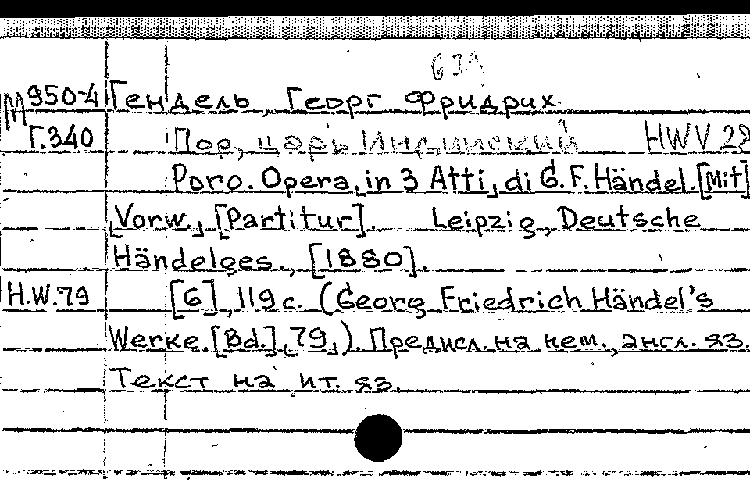 639
М950-4 Гендель, Георг Фридрих.
Г.340 Пор, царь Индийский HWV 28
Poro. Opera, in 3 Atti, di G. F. Händel. [Mit]
Vorw., [Partitur]. Leipzig, Deutsche
Händelges., [1880].
H.W.79 [6], 119 с. (Georg Friedrich Händel's
Werke. [Bd.], 79,). Предисл. на нем., англ. яз.
Текст на ит. яз.